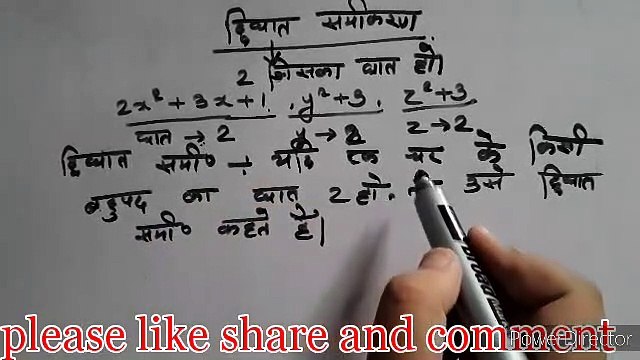 द्विघात समीकरण
2 जिसका घात हो।
2x² + 3x + 1, y² + 3, z² + 3
घात → 2 y → 2 z → 2
द्विघात समी० ÷ यदि एक चर के किसी
बहुपद का घात 2 हो, उसे द्विघात
समी० कहते है।
please like share and comment
PowerDirector